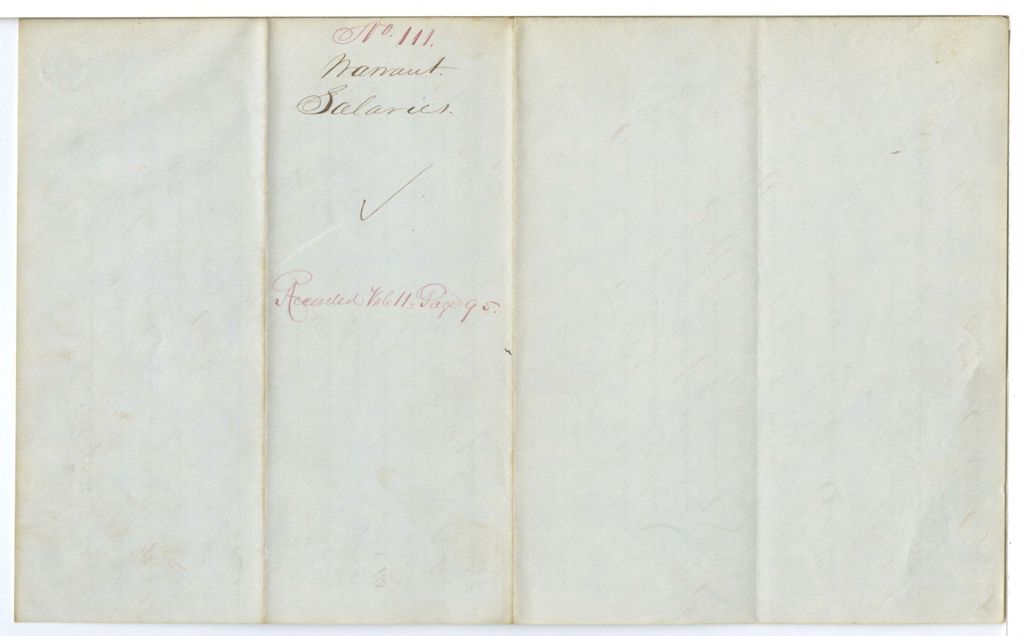 No. 111.
Warrant.
Salaries.
Recorded Vol 11, Page 95.